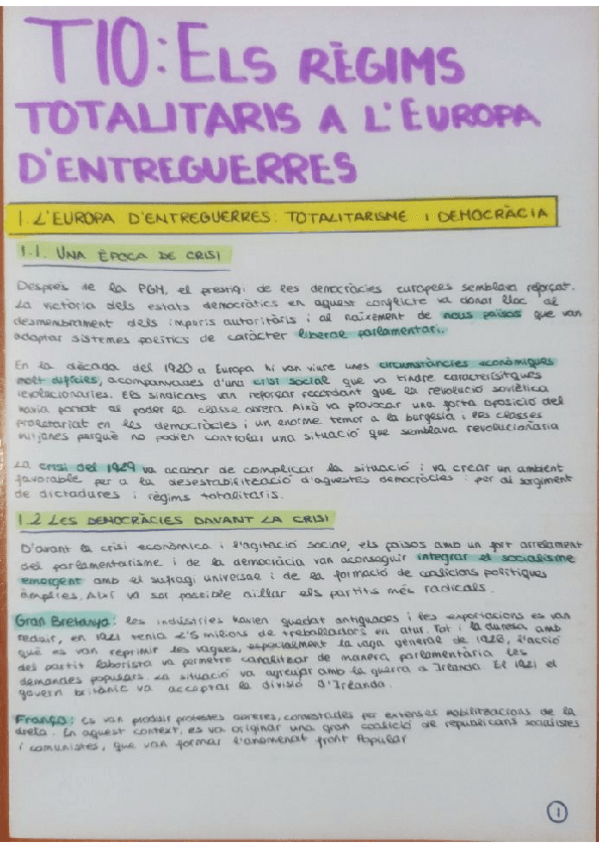 T10: ELS RÈGIMS
TOTALITARIS A L'EUROPA
D'ENTREGUERRES
1 L'EUROPA D'ENTREGUERRES: TOTALITARISME I DEMOCRÀCIA
1.1. UNA ÈPOCA DE CRISI
Després de la PGM, el prestigi de les democràcies europees semblava reforçat.
La victòria dels estats democràtics en aquest conflicte va donar lloc al
desmembrament dels imperis autoritàris i al naixement de nous països que van
adaptar sistemes polítics de caràcter liberal parlamentari.
En la dècada del 1920 a Europa hi van viure unes circumstàncies econòmiques
molt difícils, acompanyades d'una crisi social que va tindre característiques
revolucionàries. Els sindicats van reforçar recordant que la revolució soviètica
havia portat al poder la classe obrera. Això va provocar una forta oposició del
proletariat en les democràcies i un enorme temor a la burgesia i les classes
mitjanes perquè no podien controlar una situació que semblava revolucionària
La crisi del 1929 va acabar de complicar la situació i va crear un ambient
favorable per a la desestabilització d'aquestes democràcies i per al sorgiment
de dictadures i règims totalitaris.
1.2 LES DEMOCRÀCIES DAVANT LA CRISI
D'avant la crisi econòmica i l'agitació social, els països amb un fort arrelament
del parlamentarisme i de la democràcia van aconseguir integrar el socialisme
emergent amb el sufragi universal i de la formació de coalicions polítiques
àmplies. Així va ser possible aïllar els partits més radicals.
Gran Bretanya: les indústries havien quedat antiguades i les exportacions es van
reduir, en 1921 tenia 2'5 milions de treballadors en atur. Tot i la duresa amb
què es van reprimir les vagues, especialment la vaga general de 1926, l'acció
del partit laborista va permetre canalitzar de manera parlamentària les
demandes populars. La situació va agreujar amb la guerra a Irlanda. El 1921 el
govern britànic va acceptar la divisió d'Irlanda.
França: es van produir protestes obreres, contestades per extenses mobilitzacions de la
dreta. En aquest context, es va originar una gran coalició de republicans socialistes
i comunistes, que van formar l'anomenat front Popular
1